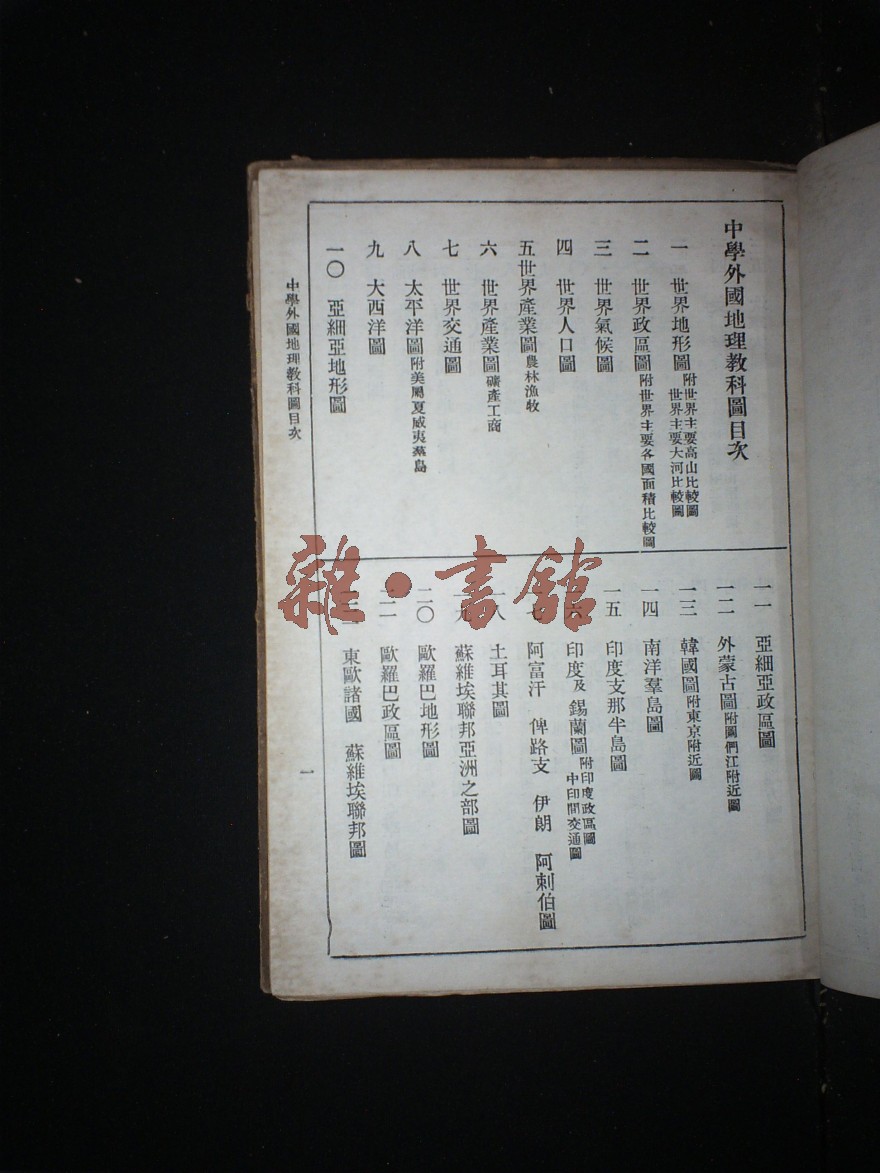 中學外國地理教科圖目次
一 世界地形圖 附世界主要高山比較圖
世界主要大河比較圖
二 世界政區圖 附世界主要各國面積比較圖
三 世界氣候圖
四 世界人口圖
五 世界產業圖 農林漁牧
六 世界產業圖 礦產工商
七 世界交通圖
八 太平洋圖 附美屬夏威夷羣島
九 大西洋圖
一〇 亞細亞地形圖
一一 亞細亞政區圖
一二 外蒙古圖 附圖們江附近圖
一三 韓國圖 附東京附近圖
一四 南洋羣島圖
一五 印度支那半島圖
一六 印度及錫蘭圖 附印度政區圖
中印間交通圖
一七 阿富汗 俾路支 伊朗 阿剌伯圖
一八 土耳其圖
一九 蘇維埃聯邦亞洲之部圖
二〇 歐羅巴地形圖
二一 歐羅巴政區圖
二二 東歐諸國 蘇維埃聯邦圖
中學外國地理教科圖目次
一
雜·書館